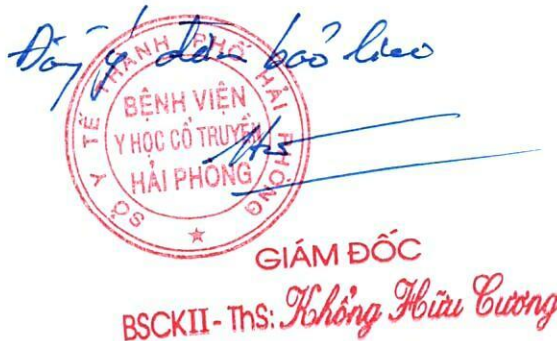 Đồng ý đảm bảo
SỞ Y TẾ THÀNH PHỐ HẢI PHÒNG
BỆNH VIỆN
Y HỌC CỔ TRUYỀN
HẢI PHÒNG
GIÁM ĐỐC
BSCKII - ThS: Khổng Hữu Cường